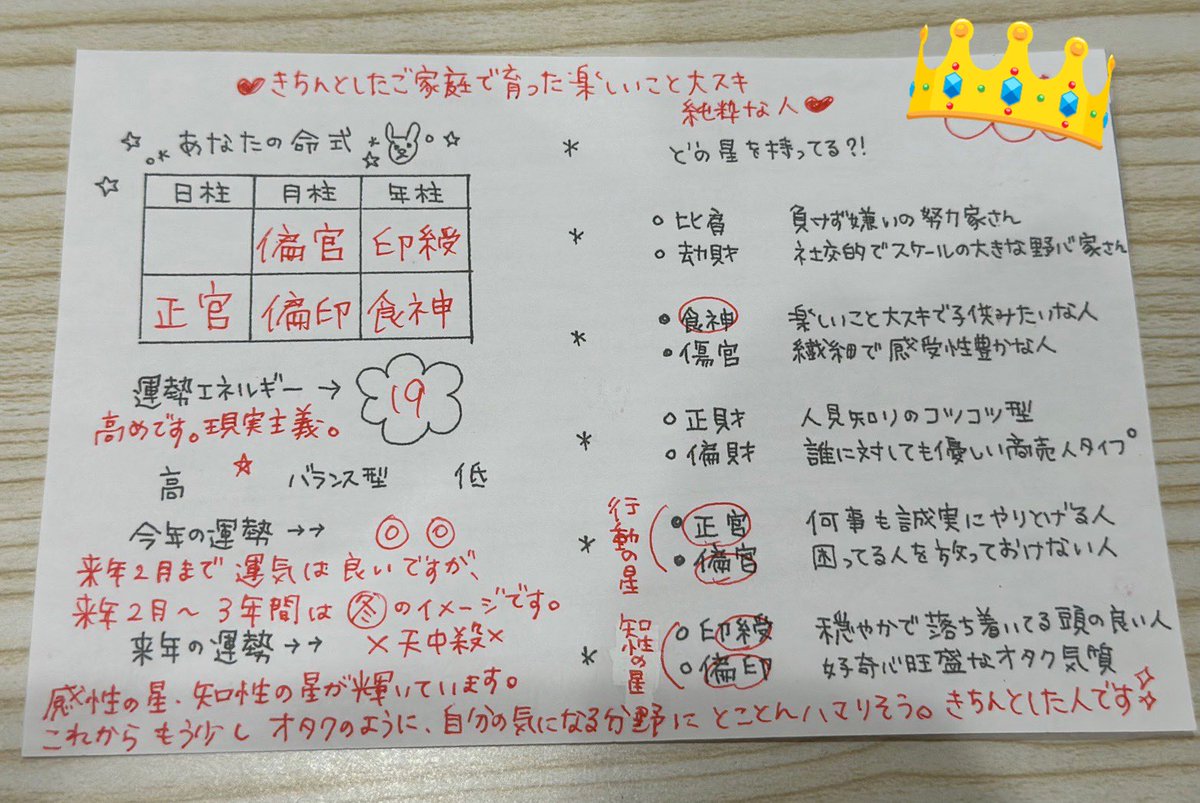 ♥きちんとしたご家庭で育った楽しいこと大スキ
純粋な人♥
あなたの命式
日柱 月柱 年柱
偏官 印綬
正官 偏印 食神
運勢エネルギー→ 19
高めです。現実主義。
高 ☆ バランス型 低
今年の運勢→→ ◎◎
来年2月まで運気は良いですが、
来年2月~3年間は冬のイメージです。
来年の運勢→→ ×天中殺×
どの星を持ってる?!
比肩 負けず嫌いの努力家さん
劫財 社交的でスケールの大きな野心家さん
食神 楽しいこと大スキで子供みたいな人
傷官 繊細で感受性豊かな人
正財 人見知りのコツコツ型
偏財 誰に対しても優しい商売人タイプ。
行動の星
正官 何事も誠実にやりとげる人
偏官 困ってる人を放っておけない人
知性の星
印綬 穏やかで落ち着いてる頭の良い人
偏印 好奇心旺盛なオタク気質
感性の星、知性の星が輝いています。
これからもう少しオタクのように、自分の気になる分野にとことんハマりそう。きちんとした人です